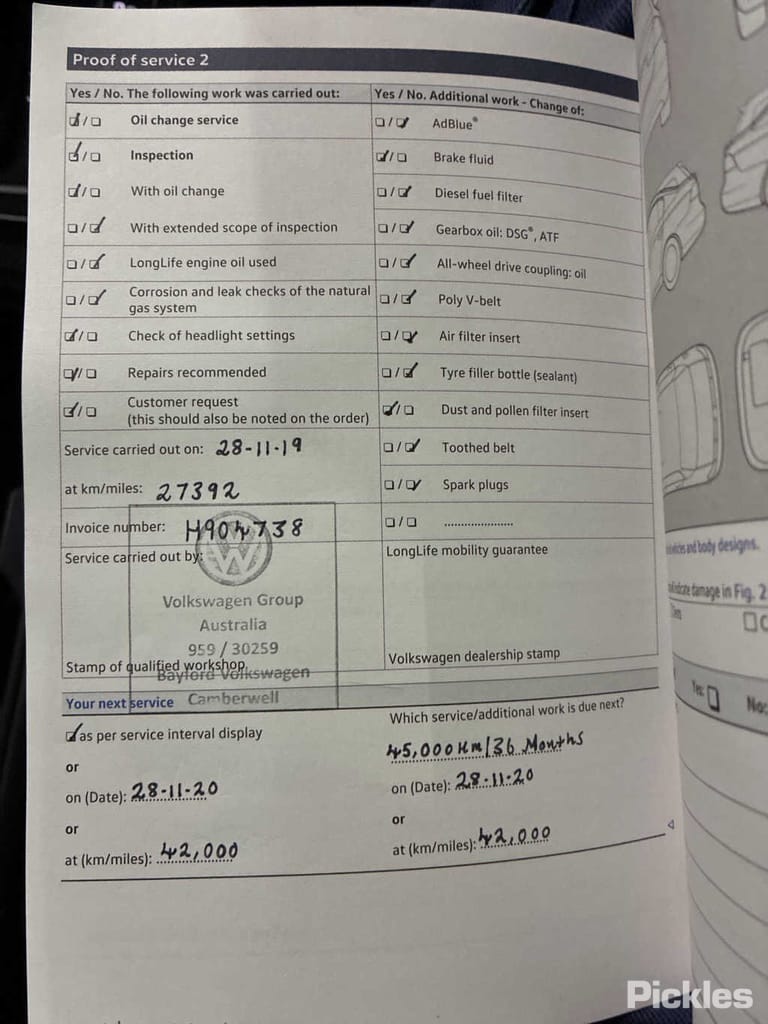 Proof of service 2
Yes / No. The following work was carried out:
Oil change service
Inspection
With oil change
With extended scope of inspection
LongLife engine oil used
Corrosion and leak checks of the natural
gas system
Check of headlight settings
Repairs recommended
Customer request
(this should also be noted on the order)
Service carried out on: 28-11-19
at km/miles: 27392
Invoice number: H904738
Service carried out by:
Volkswagen Group
Australia
959 / 30259
Stamp of qualified workshop
Bayford Volkswagen
Camberwell
Yes / No. Additional work - Change of:
AdBlue®
Brake fluid
Diesel fuel filter
Gearbox oil: DSG®, ATF
All-wheel drive coupling: oil
Poly V-belt
Air filter insert
Tyre filler bottle (sealant)
Dust and pollen filter insert
Toothed belt
Spark plugs
......................
LongLife mobility guarantee
Volkswagen dealership stamp
Your next service
as per service interval display
or
on (Date): 28-11-20
or
at (km/miles): 42,000
Which service/additional work is due next?
45,000 Km/36 Months
on (Date): 28-11-20
or
at (km/miles): 42,000
and body designs.
damage in Fig. 2
Yes:
No:
Pickles